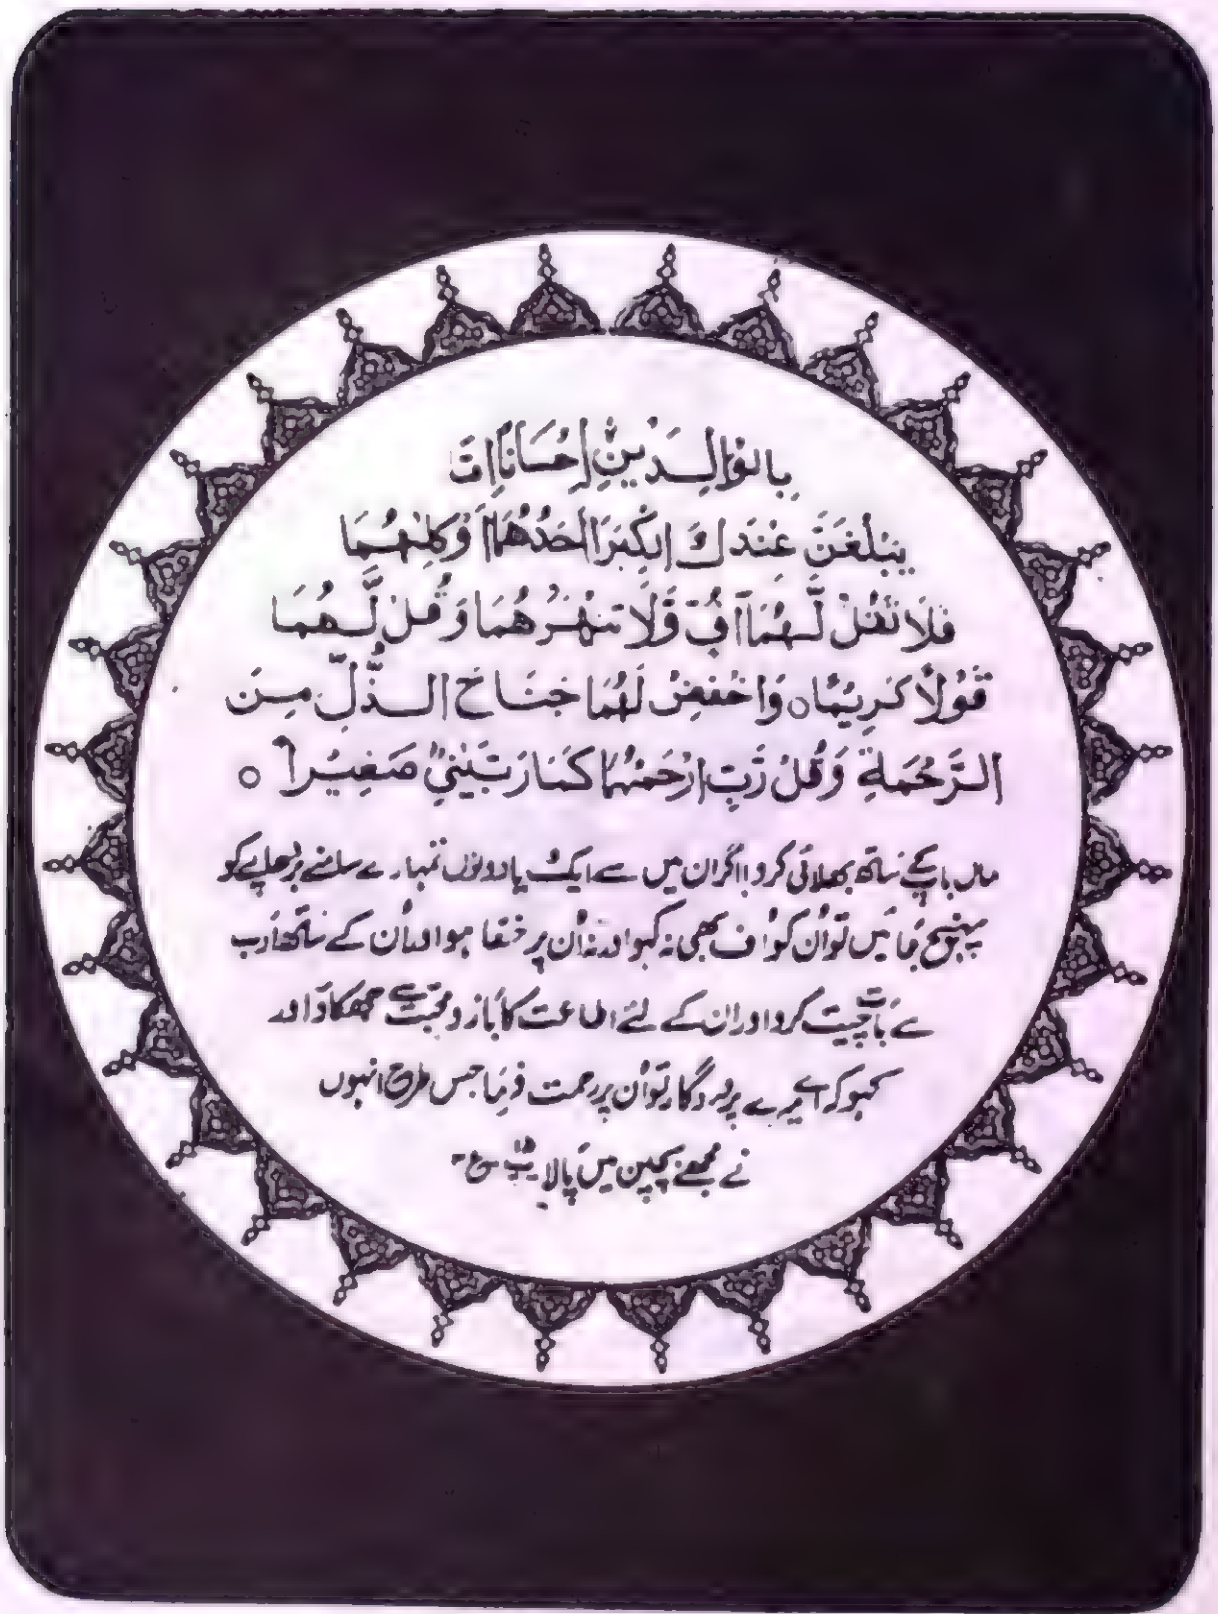 بِالْوَالِدَيْنِ اِحْسَانًا اِمَّا
يَبْلُغَنَّ عِنْدَكَ الْكِبَرَ اَحَدُهُمَا اَوْ كِلٰهُمَا
فَلَا تَقُلْ لَّهُمَا اُفٍّ وَّلَا تَنْهَرْهُمَا وَقُلْ لَّهُمَا
قَوْلًا كَرِيْمًا ○ وَاخْفِضْ لَهُمَا جَنَاحَ الذُّلِّ مِنَ
الرَّحْمَةِ وَقُلْ رَّبِّ ارْحَمْهُمَا كَمَا رَبَّيٰنِيْ صَغِيْرًا ○
ماں باپ کے ساتھ بھلائی کرو اگر ان میں سے ایک یا دونوں تمہارے سامنے بڑھاپے کو
پہنچ جائیں تو اُن کو اُف بھی نہ کہو اور نہ اُن پر خفا ہو اور اُن کے ساتھ ادب
سے بات چیت کرو اور ان کے لئے اطاعت کا بازو محبت سے جھکا دو اور
کہو کہ اے میرے پروردگار تو اُن پر رحمت فرما جس طرح انہوں
نے مجھے بچپن میں پالا